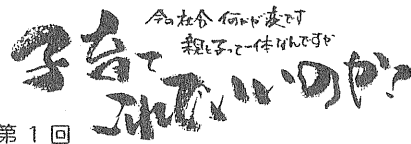 今の社会何かが変です
親と子って一体なんですか
子育て
これでいいのか?
第1回